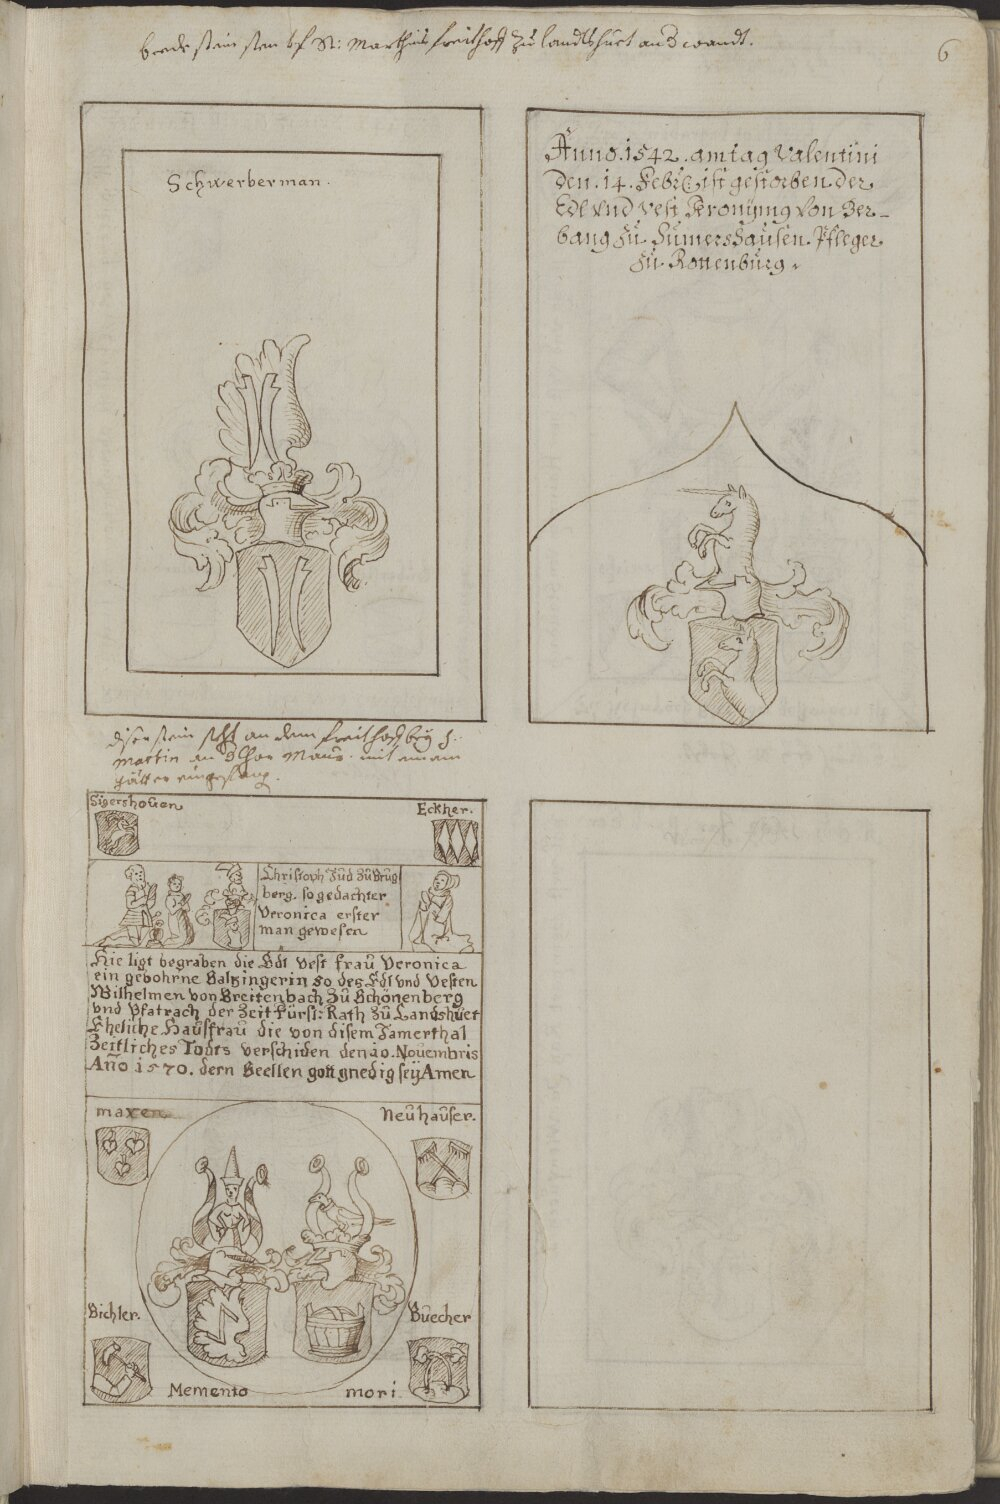 beede stein sten vf St: Marthins freithoff zu landtshuet an wandt.
6
Schwerberman.
Anno. 1542. am tag Valentini
den. 14. Febr: ist gestorben der
Edl vnd vest Jeronÿmg von Ser-
bang zu Humershausen. Pfleger
zu. Rottenburg.
diser stein steht an dem freithoff beÿ S:
martin an Chor Maur. mit einem
gätter
Sigershouen
Eckher.
Christoph Jud zu Brug
berg. so gedachter
Veronica erster
man gewesen
Hie ligt begraben die Edl vest frau Veronica
ein gebohrne Baltzingerin so des Edl vnd Vesten
Wilhelmen von Breitenbach zu Schönenberg
vnd Pfatrach der Zeit fürstl: Rath zu Landshuet
Eheliche Hausfrau die von disem Jamerthal
Zeitliches Todts verschiden den 20. Nouembris
Año 1570. dern Seellen gott gnedig seÿ Amen
maxen
Neuhauser.
Bichler.
Buecher
Memento mori